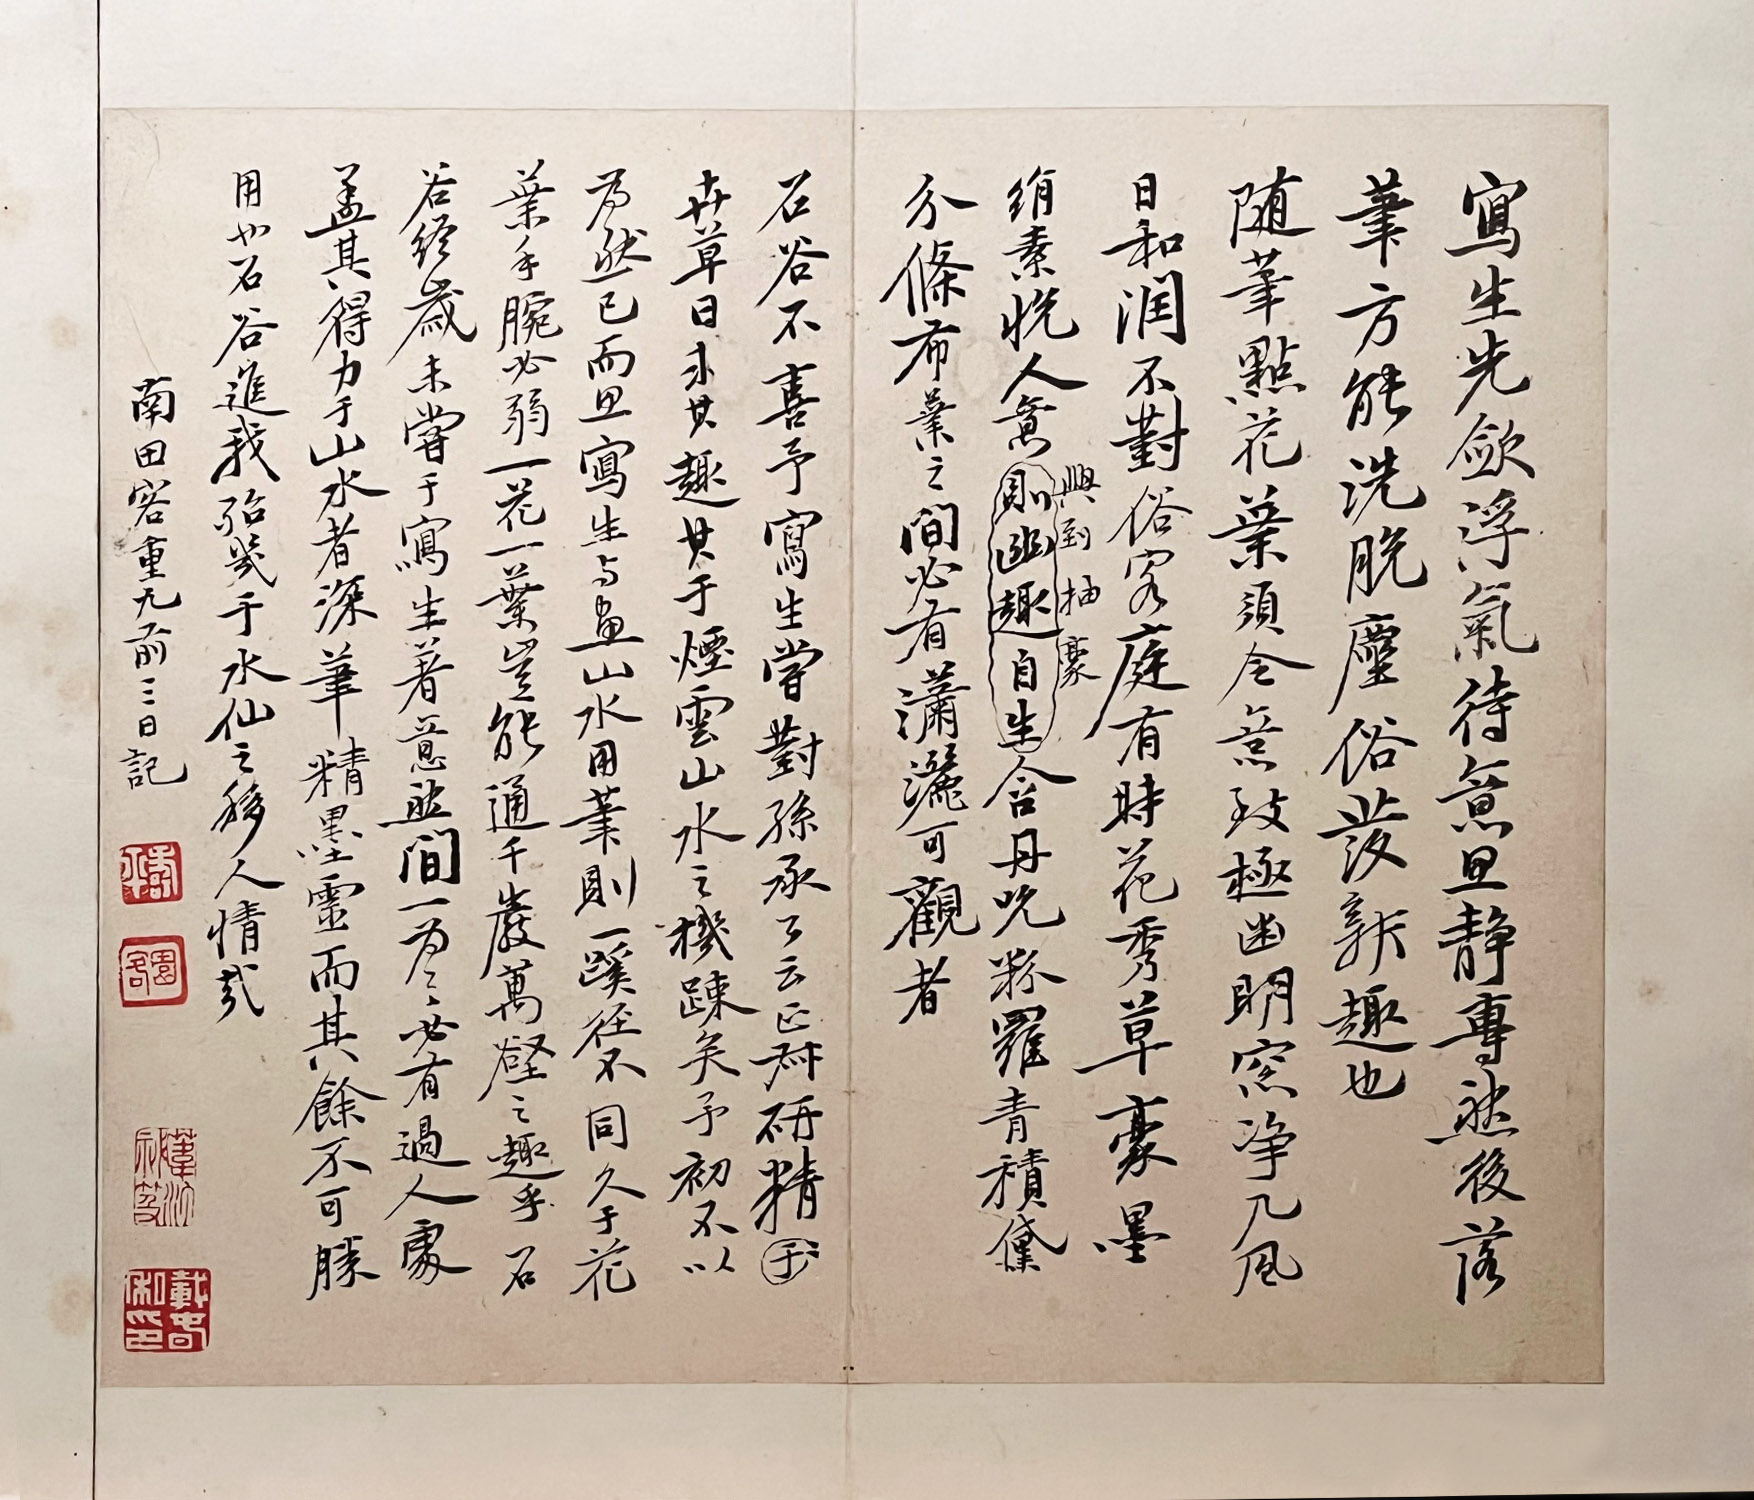 寫生先斂浮氣待意思靜專然後落
筆方能洗脫塵俗發新趣也
隨筆點花葉須令意致極幽明窓淨几風
日和潤不對俗客庭有時花秀草豪墨
絹素恍人意則幽趣自生含丹吮粉羅青積黛
興到抽豪
分條布葉之間必有瀟灑可觀者
石谷不喜予寫生嘗對孫承公云正叔研精于
卉草日求其趣其于煙雲山水之機疎矣予初不以
為然已而思寫生与畫山水用筆則一蹊徑不同久于花
葉手腕必弱一花一葉豈能通千巖萬壑之趣乎石
谷終歲未嘗于寫生著意然間一為之必有過人處
盖其得力于山水者深筆精墨靈而其餘不可勝
用也石谷進我殆幾于水仙之移人情哉
南田客重九前三日記
園客